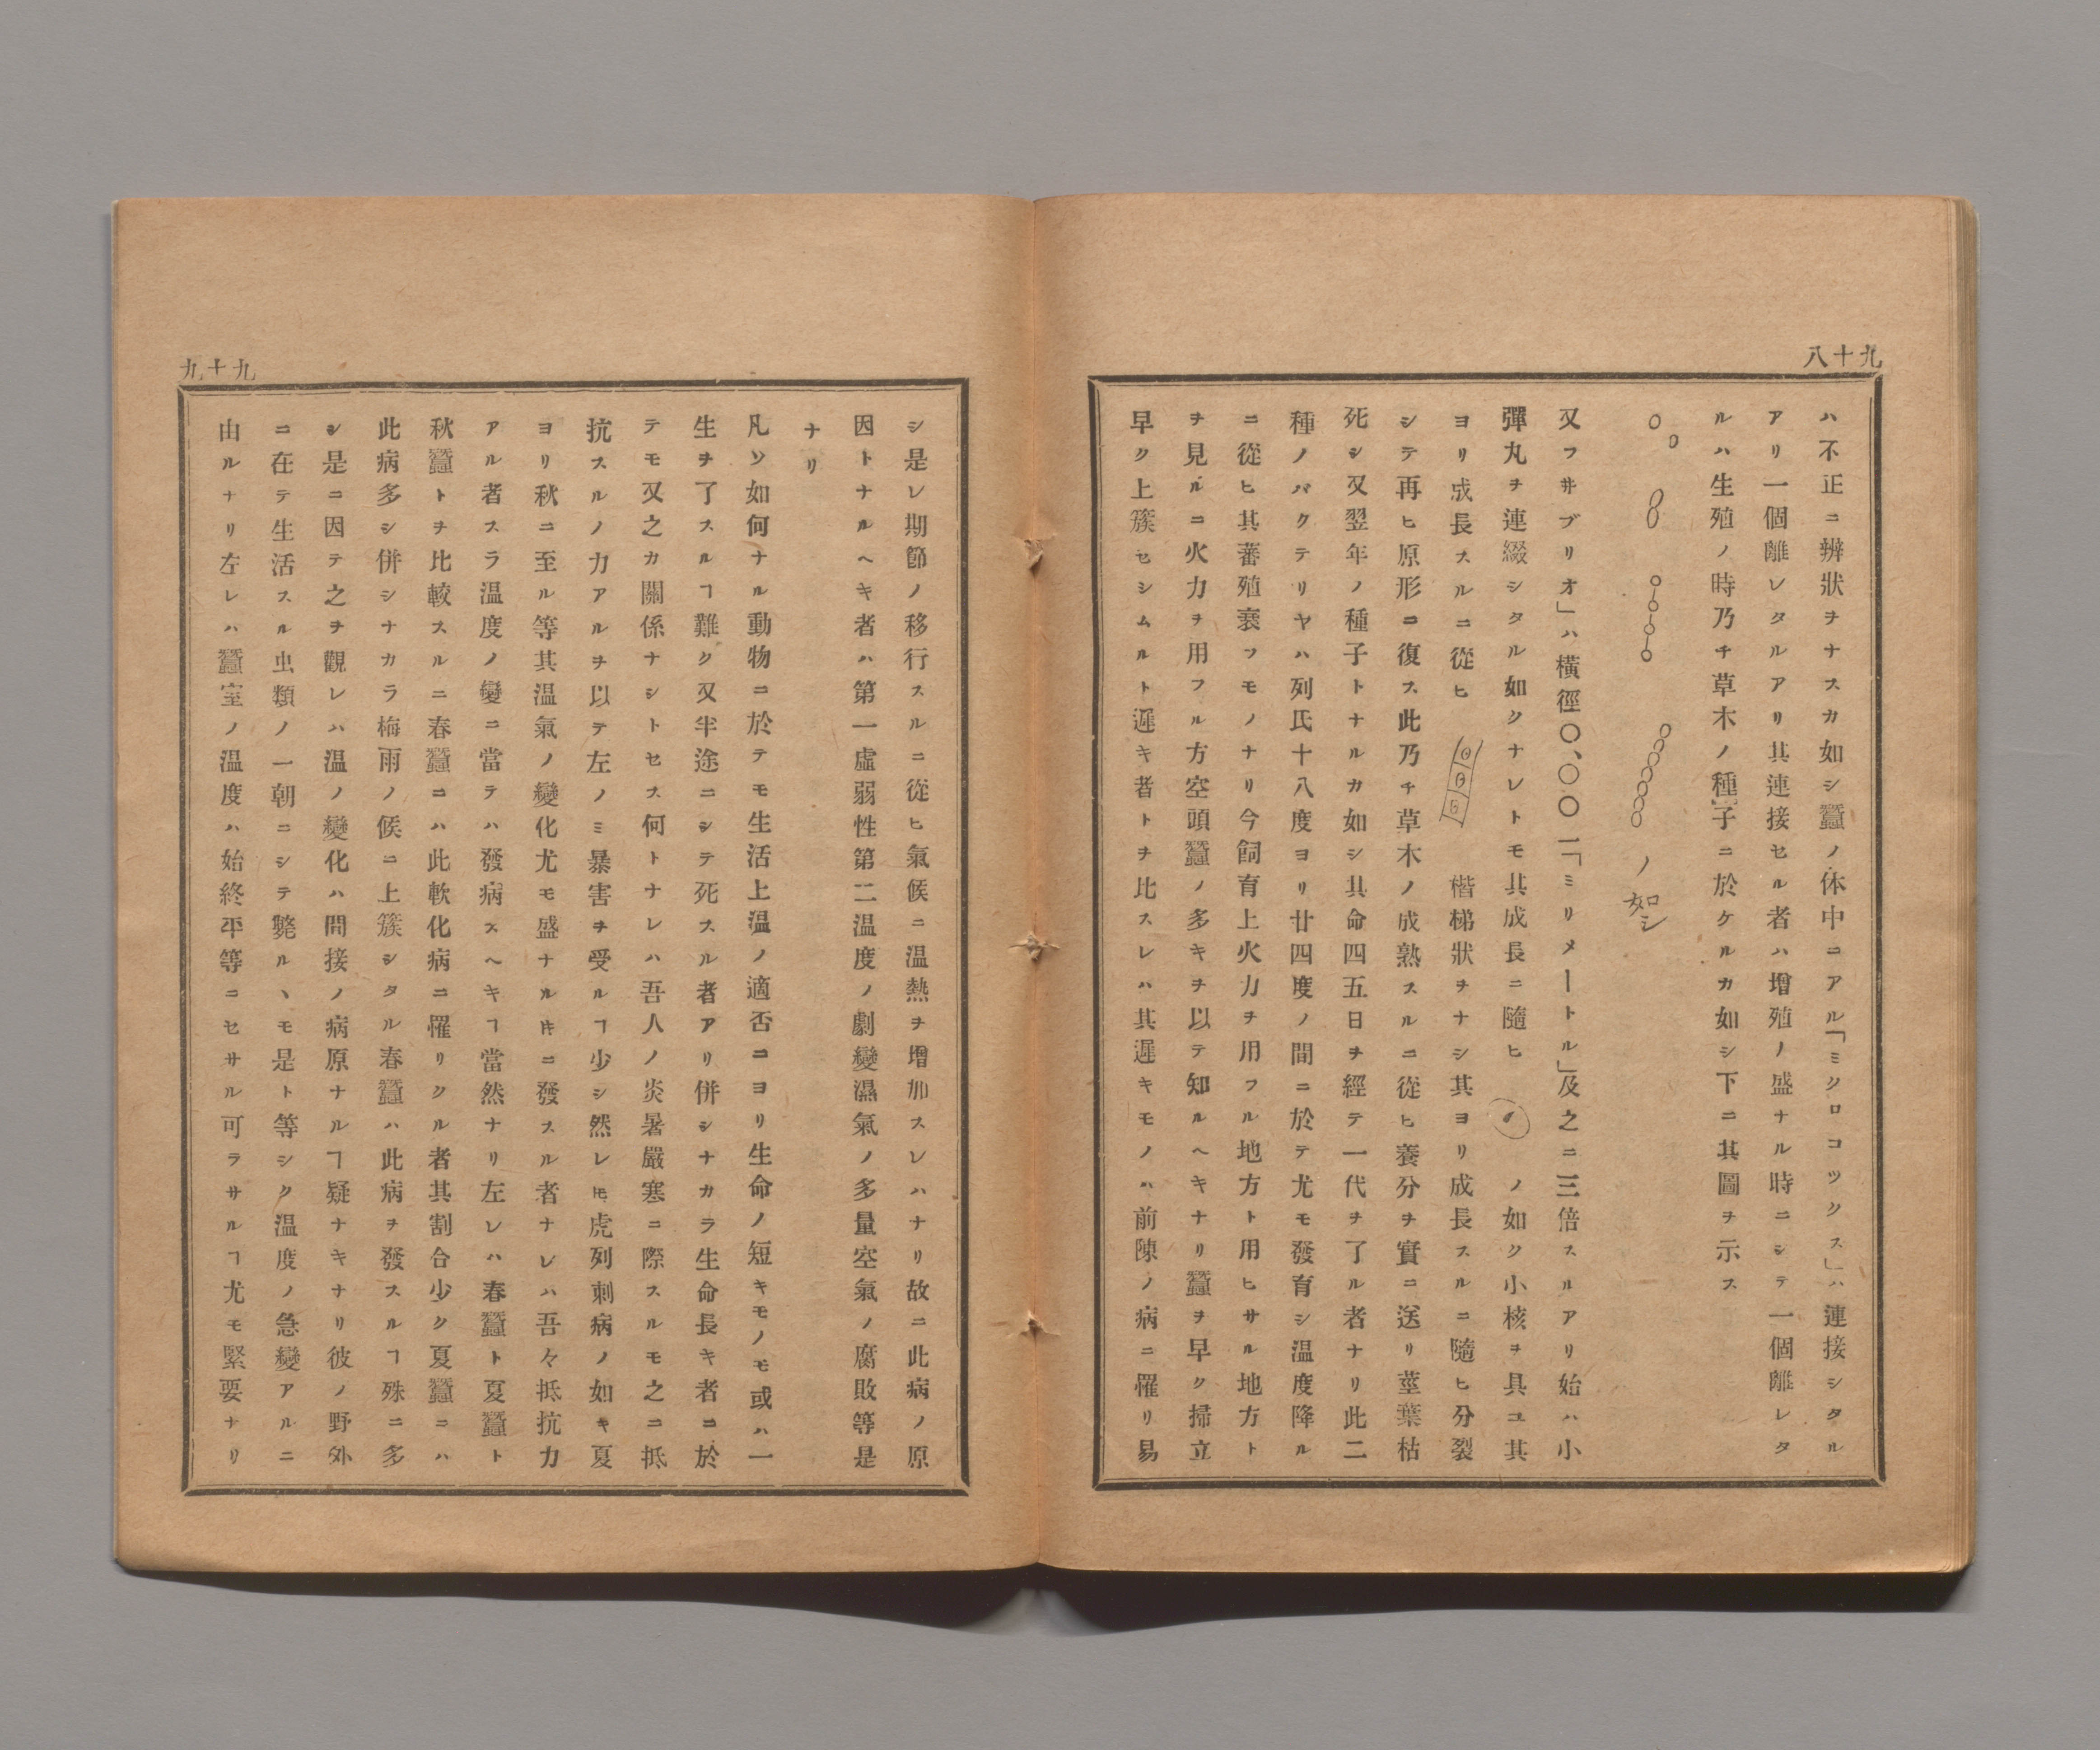 九十八
ハ不正ニ辨狀ヲナスカ如シ蠶ノ体中ニアル「ミクロコツクス」ハ連接シタル
アリ一個離レタルアリ其連接セル者ハ增殖ノ盛ナル時ニシテ一個離レタ
ルハ生殖ノ時乃チ草木ノ種子ニ於ケルカ如シ下ニ其圖ヲ示ス
ノ如シ
又フ井ブリオ」ハ橫徑〇、〇〇一「ミリメートル」及之ニ三倍スルアリ始ハ小
彈丸ヲ連綴シタル如クナレトモ其成長ニ隨ヒノ如ク小核ヲ具ユ其
ヨリ成長スルニ從ヒ楷梯狀ヲナシ其ヨリ成長スルニ隨ヒ分裂
シテ再ヒ原形ニ復ス此乃チ草木ノ成熟スルニ從ヒ養分ヲ實ニ送リ莖葉枯
死シ又翌年ノ種子トナルカ如シ其命四五日ヲ經テ一代ヲ了ル者ナリ此二
種ノバクテリヤハ列氏十八度ヨリ廿四度ノ間ニ於テ尤モ發育シ温度降ル
ニ從ヒ其蕃殖衰フモノナリ今飼育上火力ヲ用フル地方ト用ヒサル地方ト
ヲ見ルニ火力ヲ用フル方空頭蠶ノ多キヲ以テ知ルヘキナリ蠶ヲ早ク掃立
早ク上簇セシムルト遲キ者トヲ比スレハ其遲キモノハ前陳ノ病ニ罹リ易
九十九
シ是レ期節ノ移行スルニ從ヒ氣候ニ温熱ヲ增加スレハナリ故ニ此病ノ原
因トナルヘキ者ハ第一虛弱性第二温度ノ劇變濕氣ノ多量空氣ノ腐敗等是
ナリ
凡ソ如何ナル動物ニ於テモ生活上温ノ適否ニヨリ生命ノ短キモノモ或ハ一
生ヲ了スルヿ難ク又半途ニシテ死スル者アリ併シナカラ生命長キ者ニ於
テモ又之カ關係ナシトセス何トナレハ吾人ノ炎暑嚴寒ニ際スルモ之ニ抵
抗スルノ力アルヲ以テ左ノミ暴害ヲ受ルヿ少シ然レ𪜈虎列刺病ノ如キ夏
ヨリ秋ニ至ル等其温氣ノ變化尤モ盛ナル𪜈ニ發スル者ナレハ吾々抵抗力
アル者スラ温度ノ變ニ當テハ發病スヘキヿ當然ナリ左レハ春蠶ト夏蠶ト
秋蠶トヲ比較スルニ春蠶ニハ此軟化病ニ罹リクル者其割合少ク夏蠶ニハ
此病多シ併シナカラ梅雨ノ候ニ上簇シタル春蠶ハ此病ヲ發スルヿ殊ニ多
シ是ニ因テ之ヲ觀レハ温ノ變化ハ間接ノ病原ナルヿ疑ナキナリ彼ノ野外
ニ在テ生活スル虫類ノ一朝ニシテ斃ルヽモ是ト等シク温度ノ急變アルニ
由ルナリ左レハ蠶室ノ温度ハ始終平等ニセサル可ラサルヿ尤モ緊要ナリ